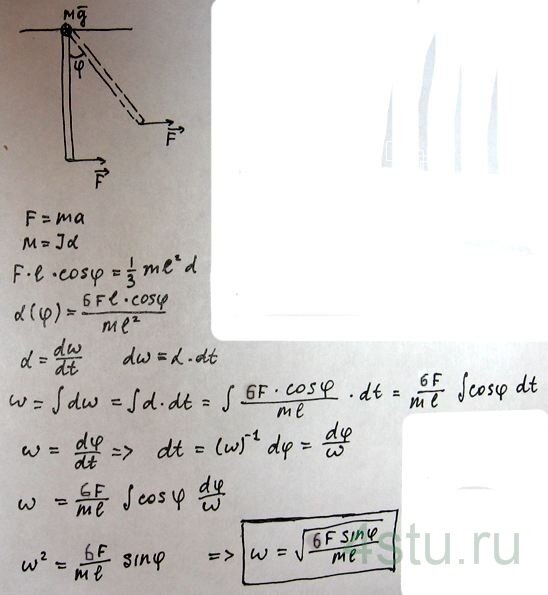 Mg̅
φ
F⃗
F⃗
F = ma
M = Jα
F·ℓ·cosφ = 1/3 mℓ² α
α(φ) = 6Fℓ·cosφ / mℓ²
α = dω/dt    dω = α·dt
ω = ∫dω = ∫α·dt = ∫ 6F·cosφ / mℓ · dt = 6F/mℓ ∫cosφ dt
ω = dφ/dt => dt = (ω)⁻¹ dφ = dφ/ω
ω = 6F/mℓ ∫cosφ dφ/ω
ω² = 6F/mℓ sinφ => ω = √(6F sinφ / mℓ)
4stu.ru